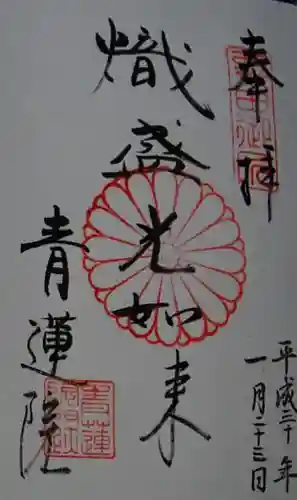 奉拝
平成三十年
一月二十三日
熾盛光如来
青蓮院